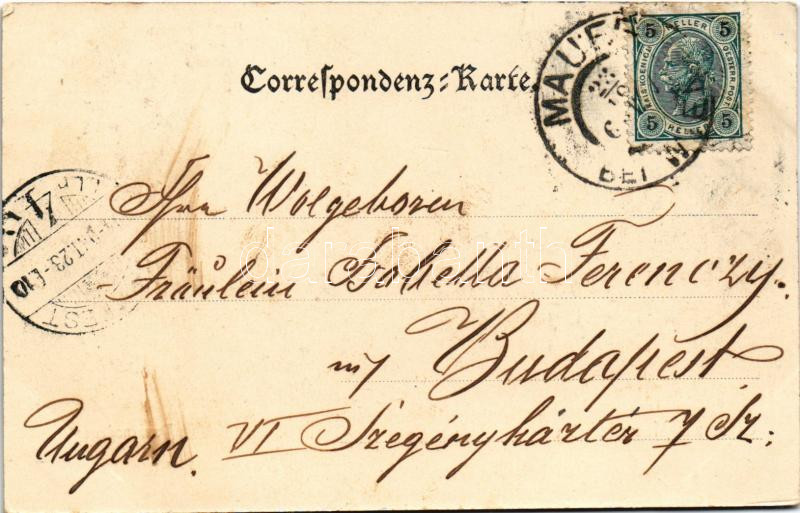 Correspondenz-Karte.
MAUER
BEI
5 HELLER 5
KAIS. KOENIGL. OESTERR. POST
5 HELLER 5
Ihre Wolgeboren
Fräulein Isabella Ferenczy.
Budapest
Ungarn. VI Szegényháztér 7 Sz:
darabanth